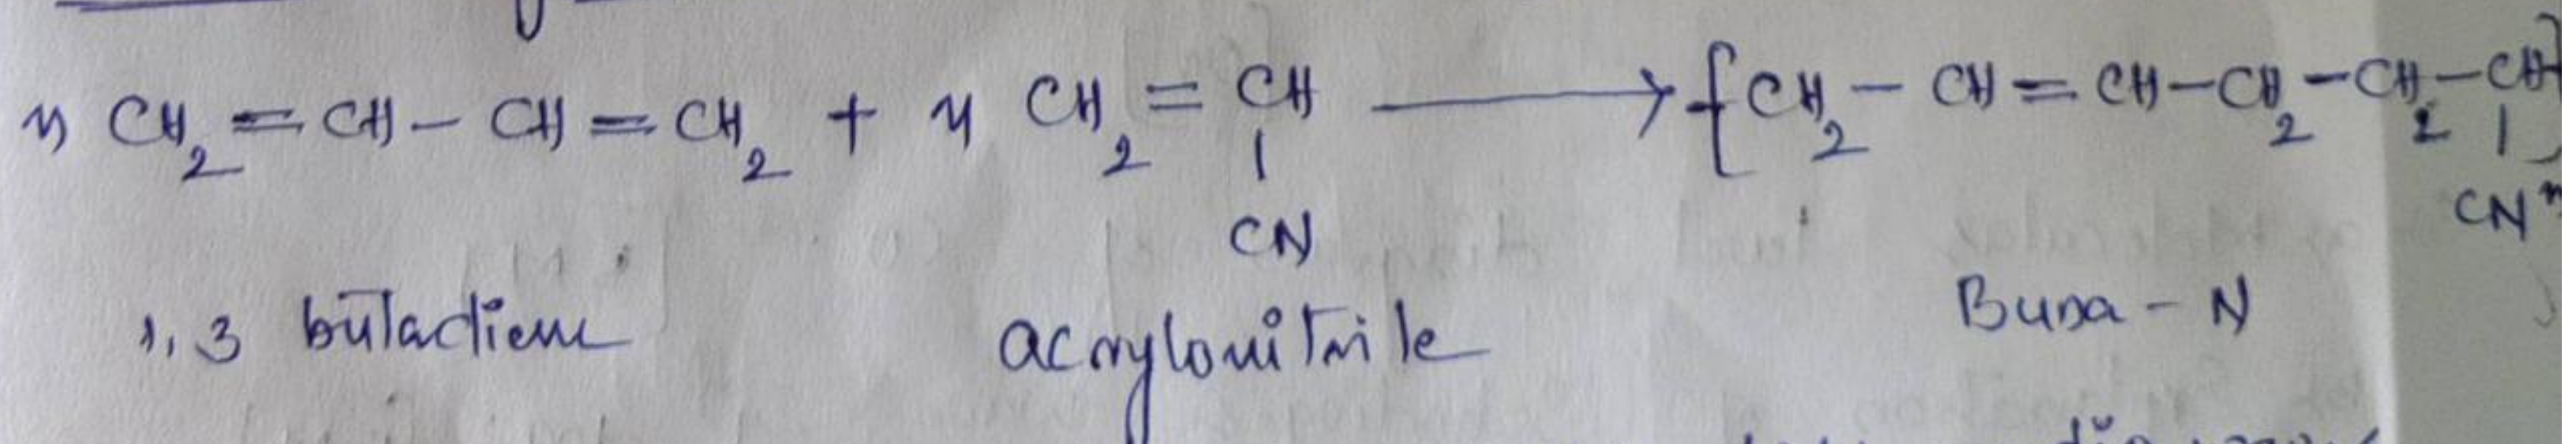 n CH2 = CH - CH = CH2 + n CH2 = CH → [CH2 - CH = CH - CH2 - CH2 - CH]n
|
CN
|
CN
1,3 butadiene acrylonitrile Buna - N